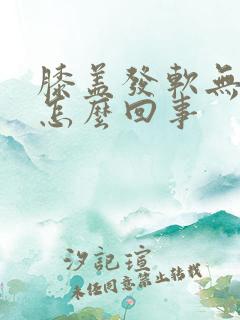 膝盖發軟無
怎麼回事
汐記瑄
未任同意禁止轉載